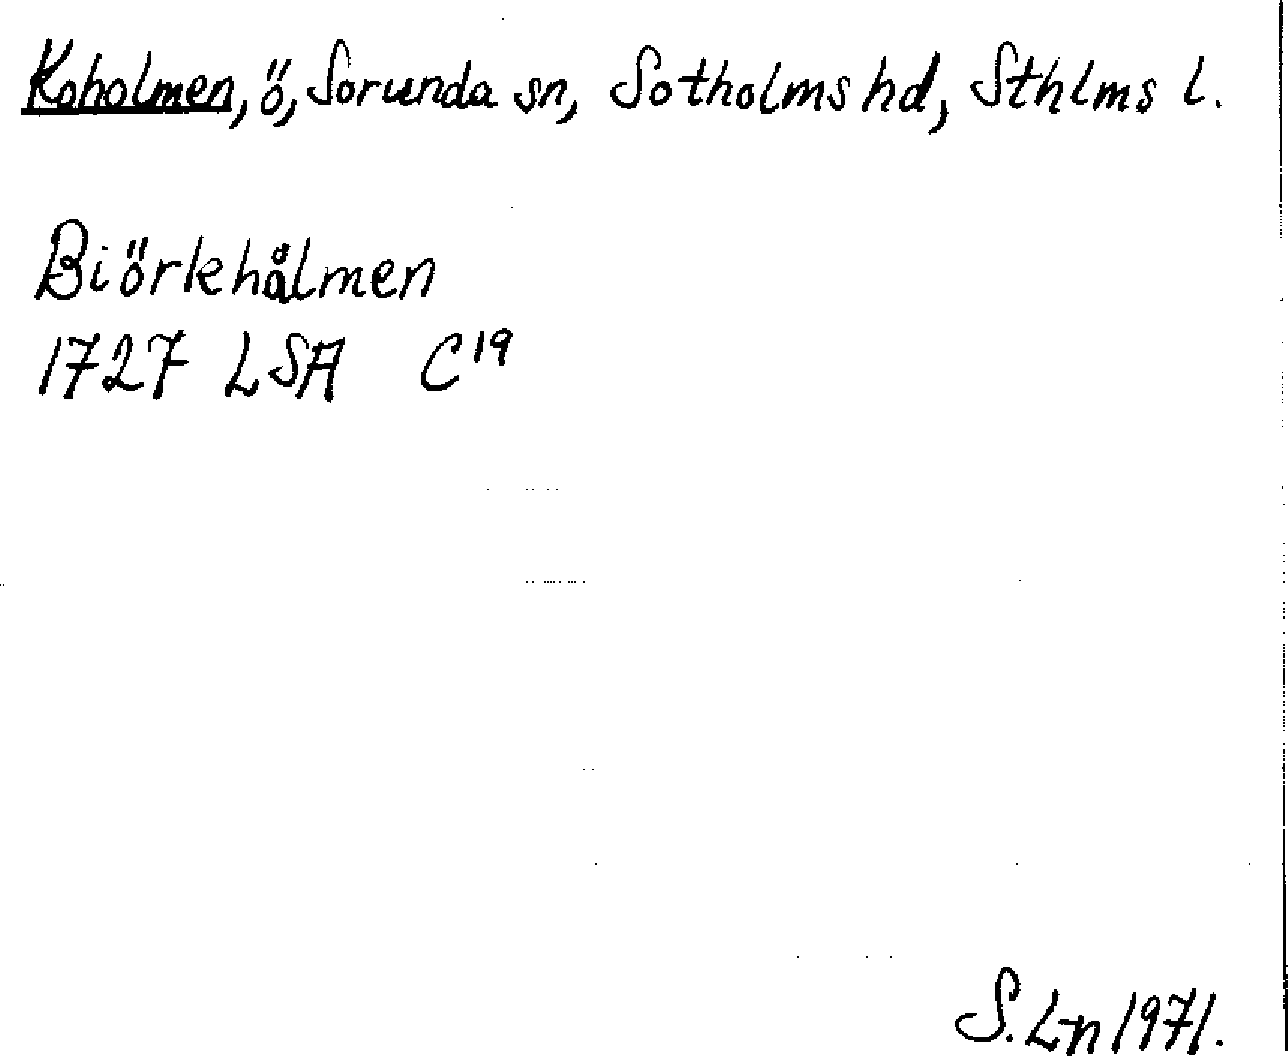 Koholmen, ö, Sorunda sn, Sotholms hd, Sthlms l.
Biörkhålmen
1727 LSA C19
S. Ln 1971.